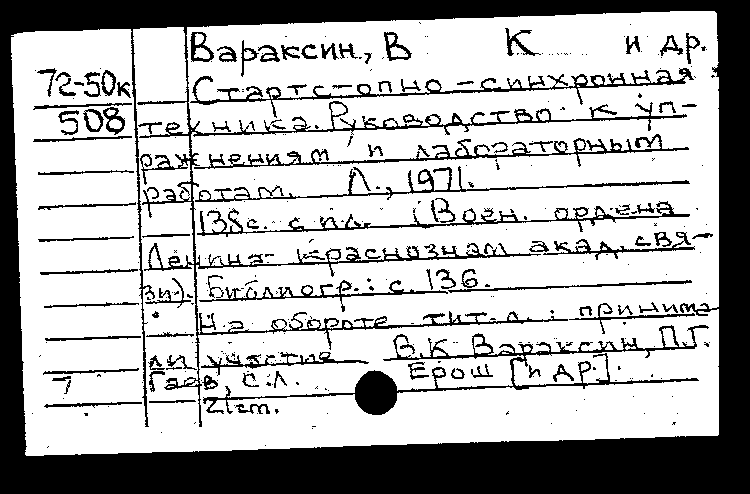 Вараксин, В К и др.
72-50к Стартстопно-синхронная
508 техника. Руководство к уп-
ражнениям и лабораторным
работам. Л., 1971.
138с. с ил. (Воен. ордена
Ленина Краснознам акад. свя-
зи). Библиогр.: с. 136.
На обороте тит. л.: принима
ли участие В.К Вараксин, П.Г.
7 Гаев, С.Л. Ерош [и др.].
21см.